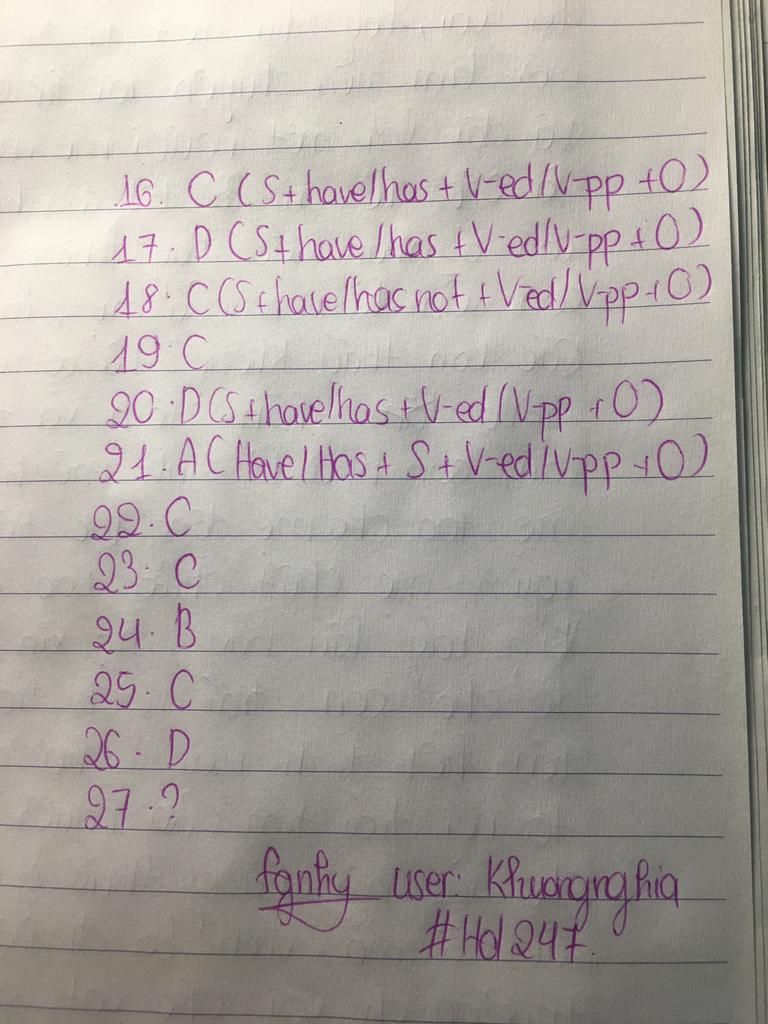 16. C (S+have/has + V-ed/V-pp +O)
17. D (S+have/has +V-ed/V-pp +O)
18. C (S+have/has not + V-ed/V-pp +O)
19 C
20. D (S+have/has +V-ed/V-pp +O)
21. A (Have/Has + S + V-ed/V-pp +O)
22. C
23. C
24. B
25. C
26. D
27.?
user: Khuongnghia
#Hd247.